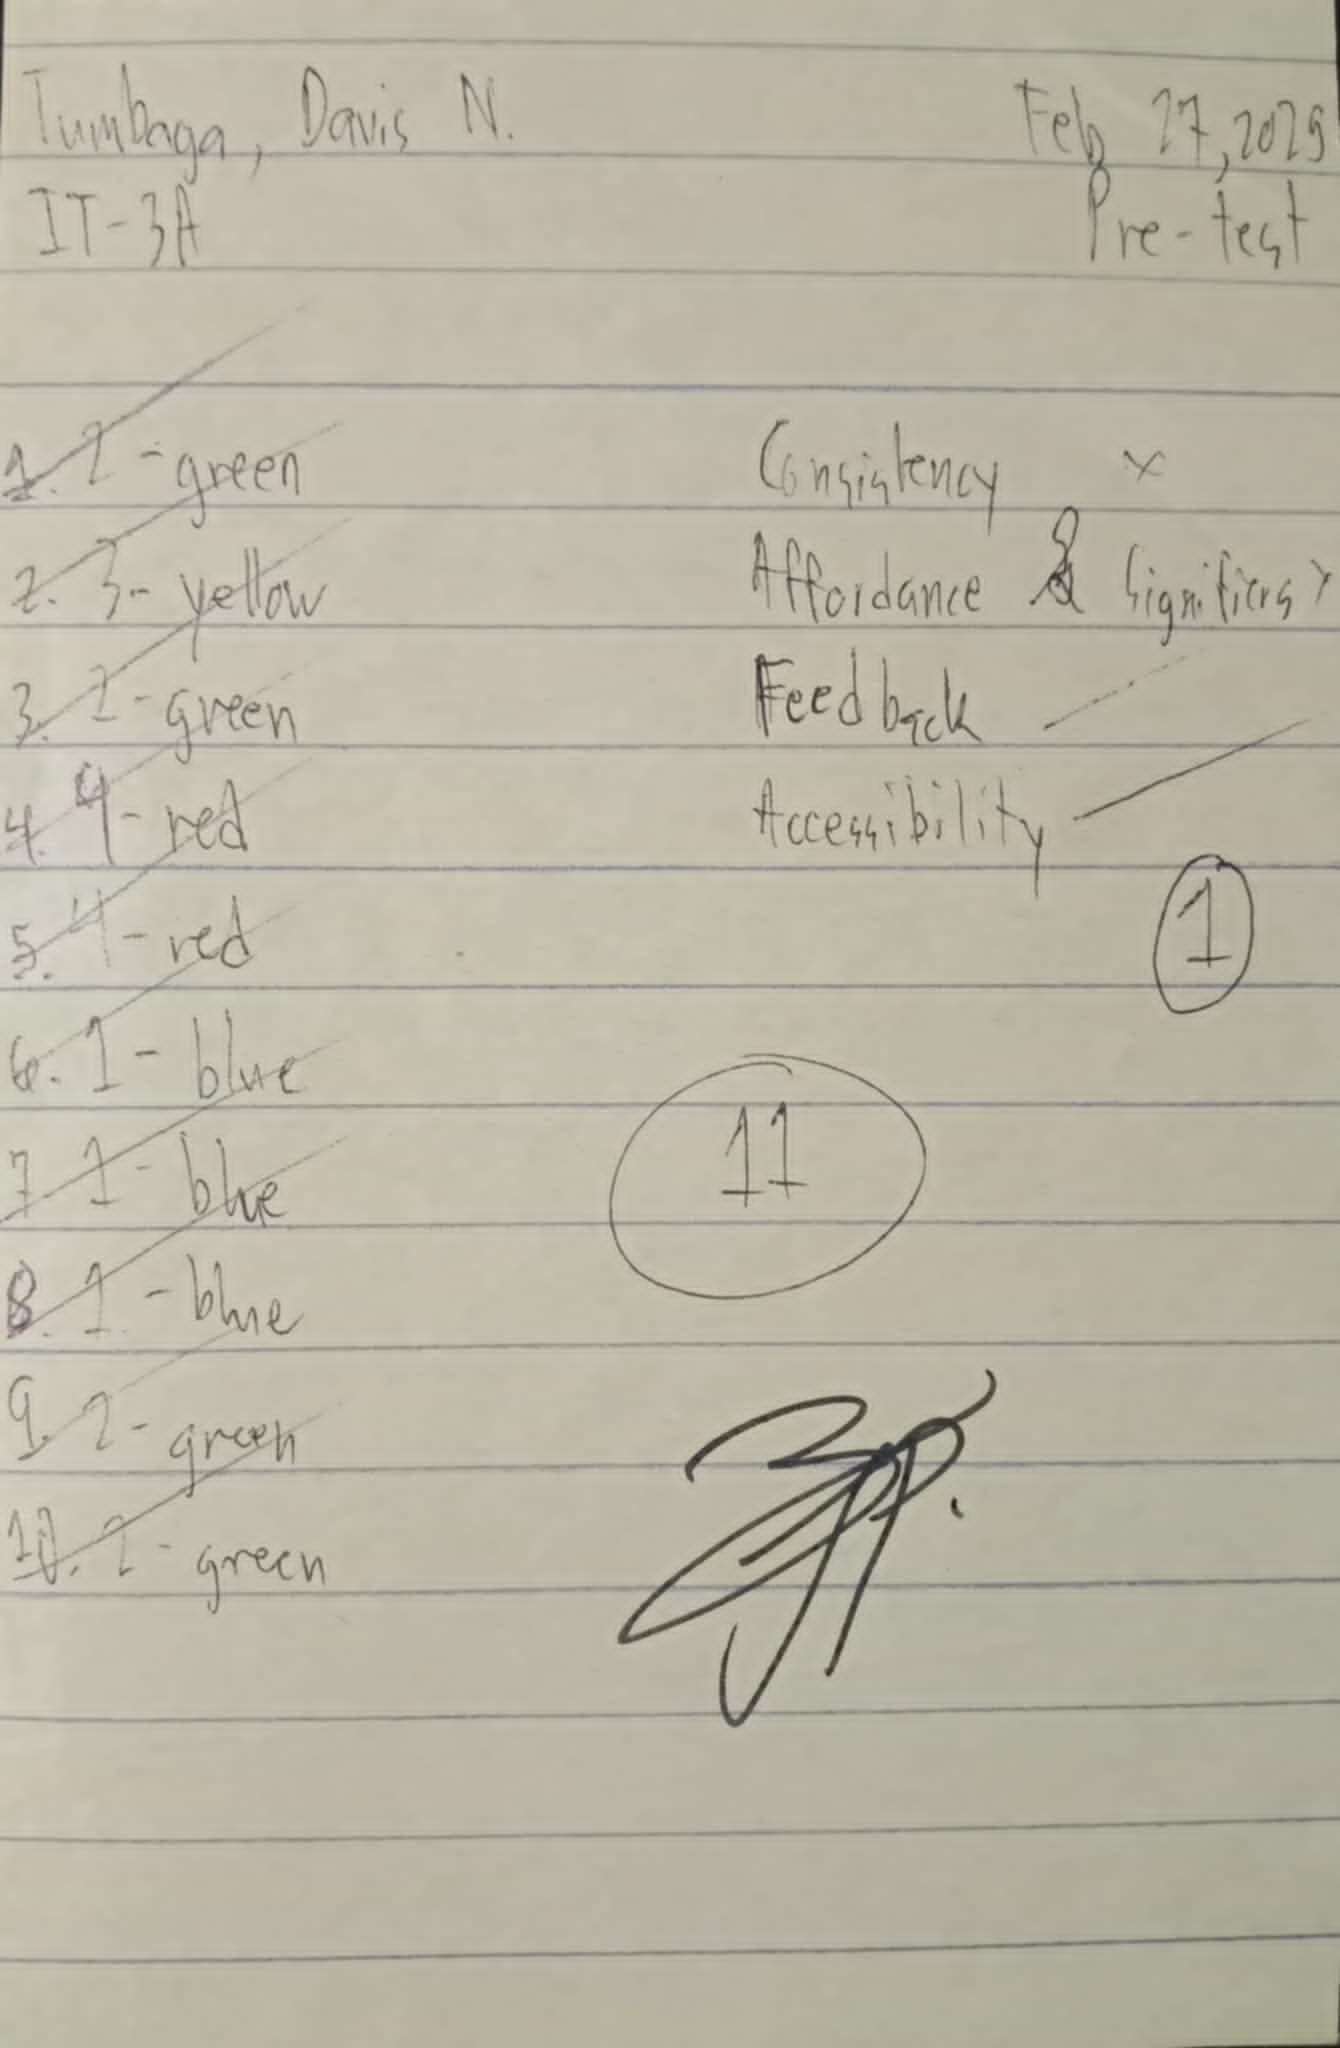 Tumbaga, Davis N.
Feb 27, 2025
IT-3A
Pre-test
1. 2 - green
2. 3 - yellow
3. 2 - green
4. 4 - red
5. 4 - red
6. 1 - blue
7. 1 - blue
8. 1 - blue
9. 2 - green
10. 2 - green
Consistency x
Affordance & Signifiers x
Feedback
Accessibility
1
11